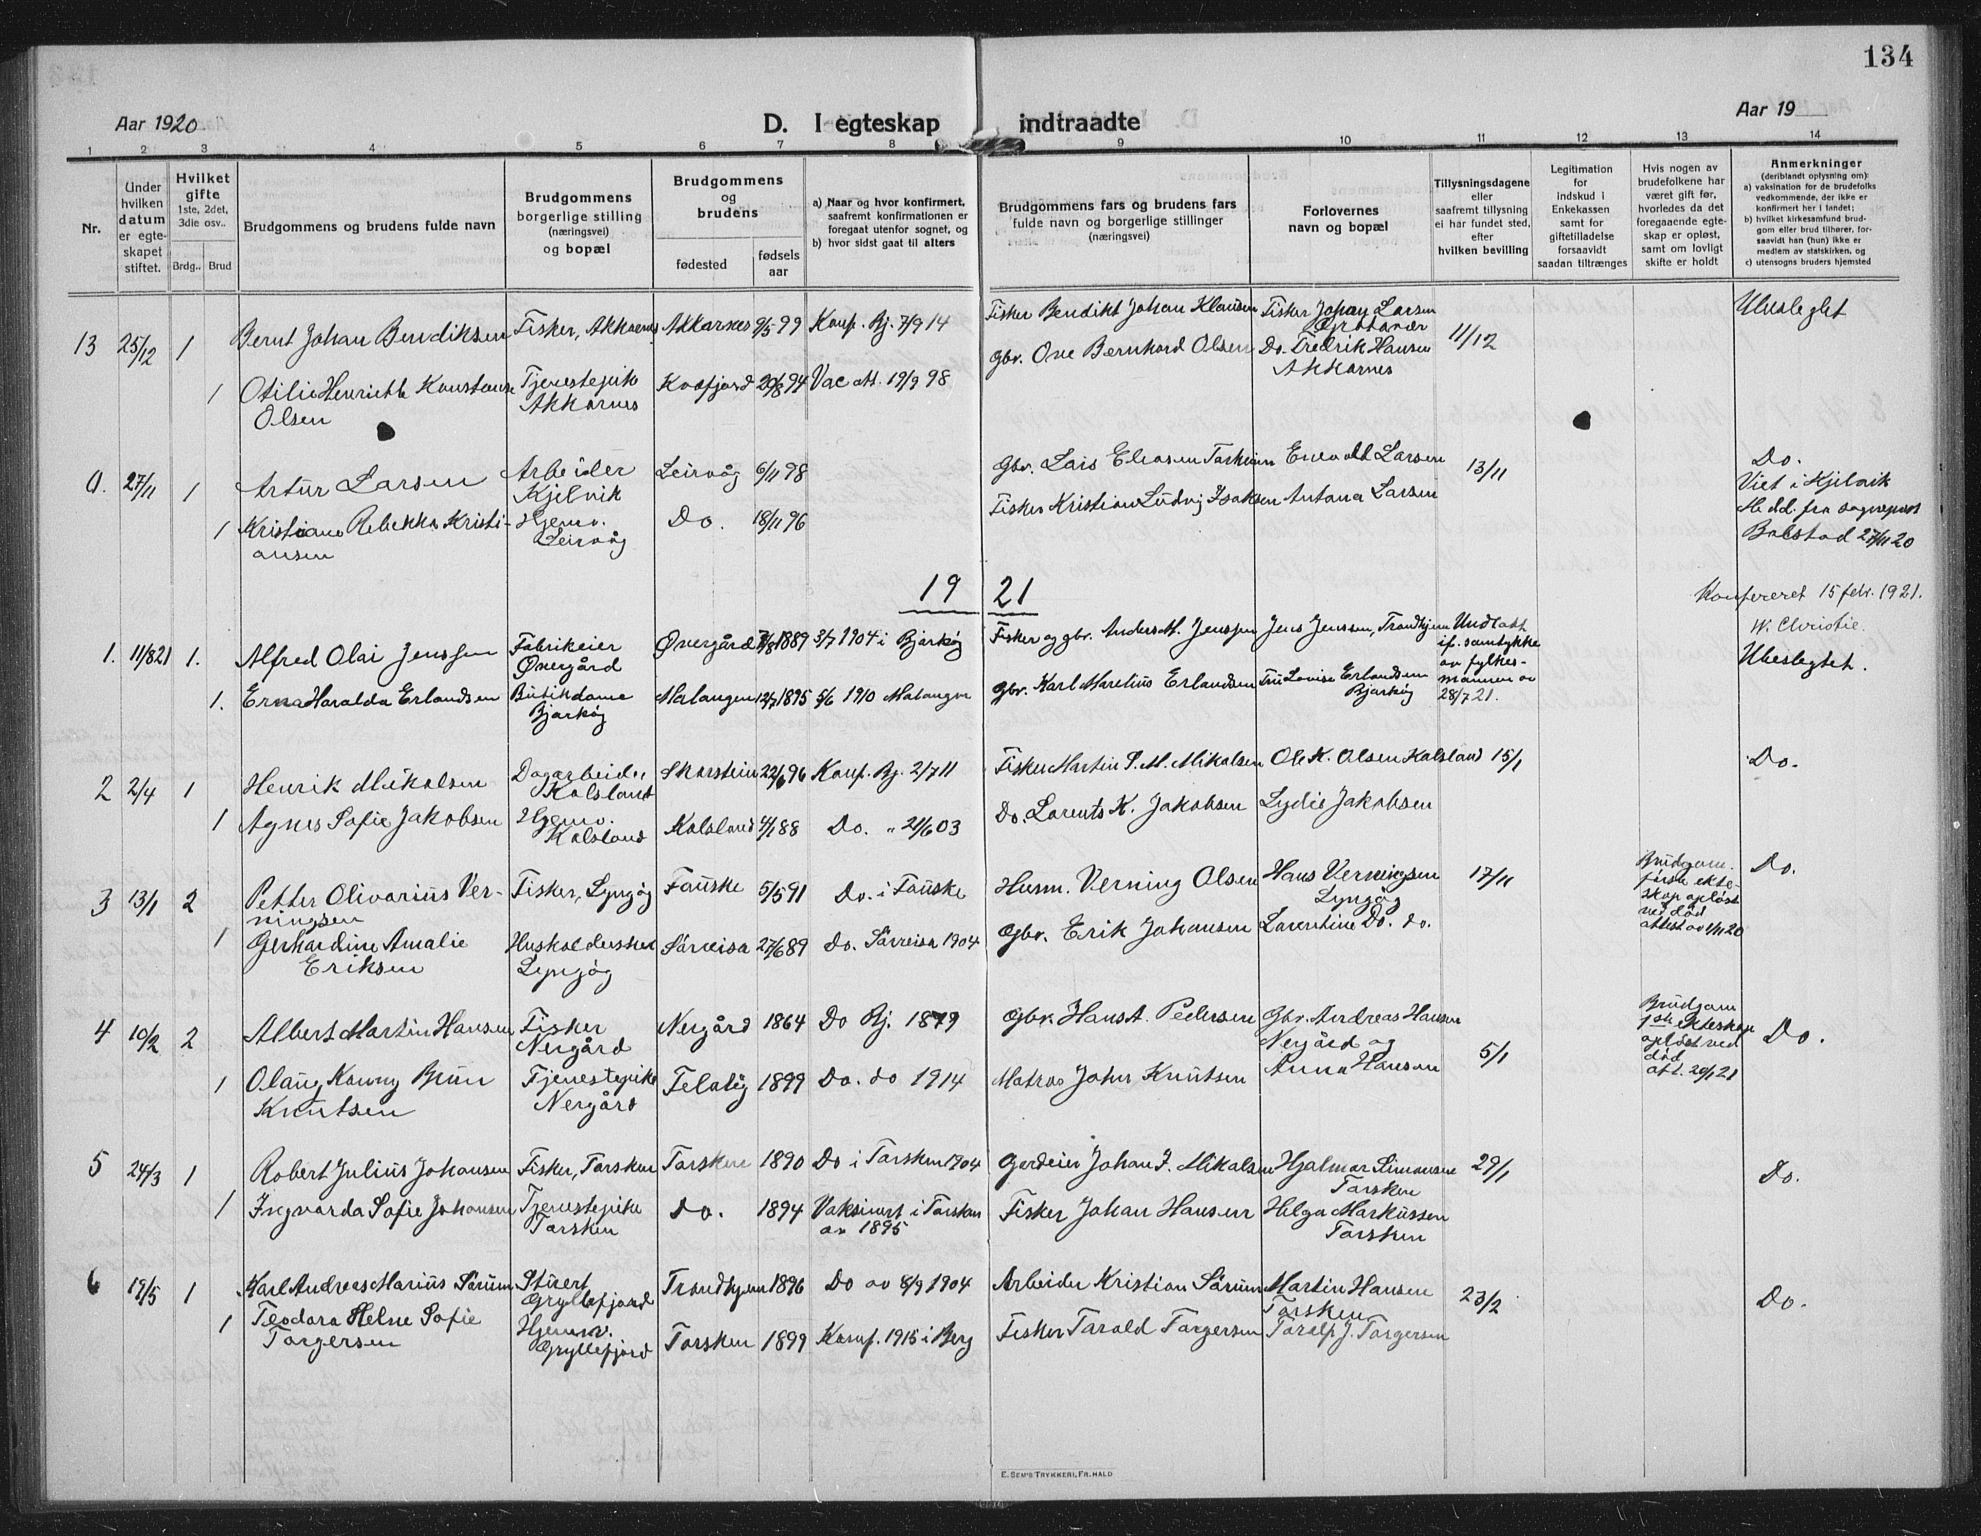 134
Aar 1920
D. I egteskap indtraadte
Aar 19
1 2 3 4 5 6 7 8 9 10 11 12 13 14
Nr.
Under hvilken datum er egteskapet stiftet.
Hvilket gifte
1ste, 2det, 3die osv..
Brdg.. Brud
Brudgommens og brudens fulde navn
Brudgommens borgerlige stilling (næringsvei) og bopæl
Brudgommens og brudens
fødested
fødsels aar
a) Naar og hvor konfirmert, saafremt konfirmationen er foregaat utenfor sognet, og
b) hvor sidst gaat til alters
Brudgommens fars og brudens fars fulde navn og borgerlige stillinger (næringsvei)
Forlovernes navn og bopæl
Tillysningsdagene eller saafremt tillysning ei har fundet sted, efter hvilken bevilling
Legitimation for indskud i Enkekassen samt for giftetilladelse forsaavidt saadan tiltrænges
Hvis nogen av brudefolkene har været gift før, hvorledes da det foregaaende egteskap er opløst, samt om lovligt skifte er holdt
Anmerkninger
(deriblandt oplysning om):
a) vaksination for de brudefolks vedkommende, der ikke er konfirmert her i landet;
b) hvilket kirkesamfund brudgom eller brud tilhører, forsaavidt han (hun) ikke er medlem av statskirken, og
c) utensogns bruders hjemsted
13 25/12 1 Bernt Johan Bendiksen Fisker, Akkarnes Akkarnes 9/5 99 Konf. Bj. 7/9 14 Fisker Bendikt Johan Klausen Fisker Johan Larsen 11/12 Ubeslegtet
1 Otilie Henriette Konstanse Olsen Tjenestepik Akkarnes Kvæfjord 20/8 94 Vac att. 19/9 98 Gbr. Ove Bernhard Olsen Do. Fredrik Hansen Akkarnes
0. 27/11 1 Artur Larsen Arbeider Kjelvik Leirvåg 6/11 98 Gbr. Lars Eliasen Enevold Larsen 13/11 Do.
Viet i Kjelvik
Medd. fra sognepest
27/11 20
1 Kristiane Rebekka Kristiansen Hjemv. Leirvåg Do. 18/11 96 Fisker Kristian Ludvig Isaksen Antana Larsen
19 21
Konfereret 15 febr. 1921.
W. Christie.
1. 11/8 21 1. Alfred Olai Jenssen Fabrikeier Øvergård Øvergård 1889 3/7 1904 i Bjarkøy Fisker og gbr. Anders M. Jenssen Jens Jenssen, Trondhjem Undlatt if. samtykke av fylkesmannen av 28/7 21. Ubeslegtet.
1. Erna Haralda Erlandsen Butikdame Bjarkøy Malangen 12/7 1895 5/6 1910 Malangen Gbr. Karl Marelius Erlandsen Fru Lovise Erlandsen Bjarkøy
2 2/4 1 Henrik Mikalsen Dagarbeider Kalsland Skarstein 22/6 96 Konf. Bj. 2/7 11 Fisker Martin P. M. Mikalsen Ole K. Olsen Kalsland 15/1 Do.
1 Agnes Sofie Jakobsen Hjemv. Kalsland Kalsland 4/1 88 Do. " 21/6 03 Do. Lorents K. Jakobsen Lydie Jakobsen
3 13/1 2 Petter Olivarius Verningsen Fisker, Lyngøy Fauske 5/5 91 Do. i Fauske Husm. Verning Olsen Hans Verningsen Lyngøy 17/11 Brudgom. første ekteskap opløst ved død attest av 1/11 20 Do.
1 Gerhardine Amalie Eriksen Husholderske Lyngøy Sørreisa 27/6 89 Do. Sørreisa 1904 Gbr. Erik Johansen Laurentine Do. do.
4 10/2 2 Albert Martin Hansen Fisker Nergård Nergård 1864 Do Bj. 1879 Gbr. Hans A. Pedersen Gbr. Andreas Hansen Nergård og Anna Hansen 5/1 Brudgom 1ste ekteskap opløst ved død att. 20/1 21 Do.
1 Olaug Konny Brun Knutsen Tjenestepike Nergård 1899 Do. do 1914 Matros Johr Knutsen
5 24/3 1 Robert Julius Johansen Fisker, Torsken Torsken 1890 Do i Torsken 1904 Gårdeier Johan J. Mikalsen Hjalmar Simonsen Torsken 29/1 Do.
1 Ingvarda Sofie Johansen Tjenestepike Torsken Do. 1894 Vaksinert i Torsken av 1895 Fisker Johan Hansen Helga Markussen Torsken
6 19/5 1 Karl Andreas Marius Sørum Stuert Gryllefjord Trondhjem 1896 Do av 8/9 1904 Arbeider Kristian Sørum Martin Hansen Torsken 23/2 Do.
1 Teodora Helne Sofie Torgersen Hjemv. Gryllefjord Torsken 1899 Konf. 1915 i Berg Fisker Tarald Torgersen Toralf J. Torgersen
E. SEM'S TRYKKERI, FR.HALD